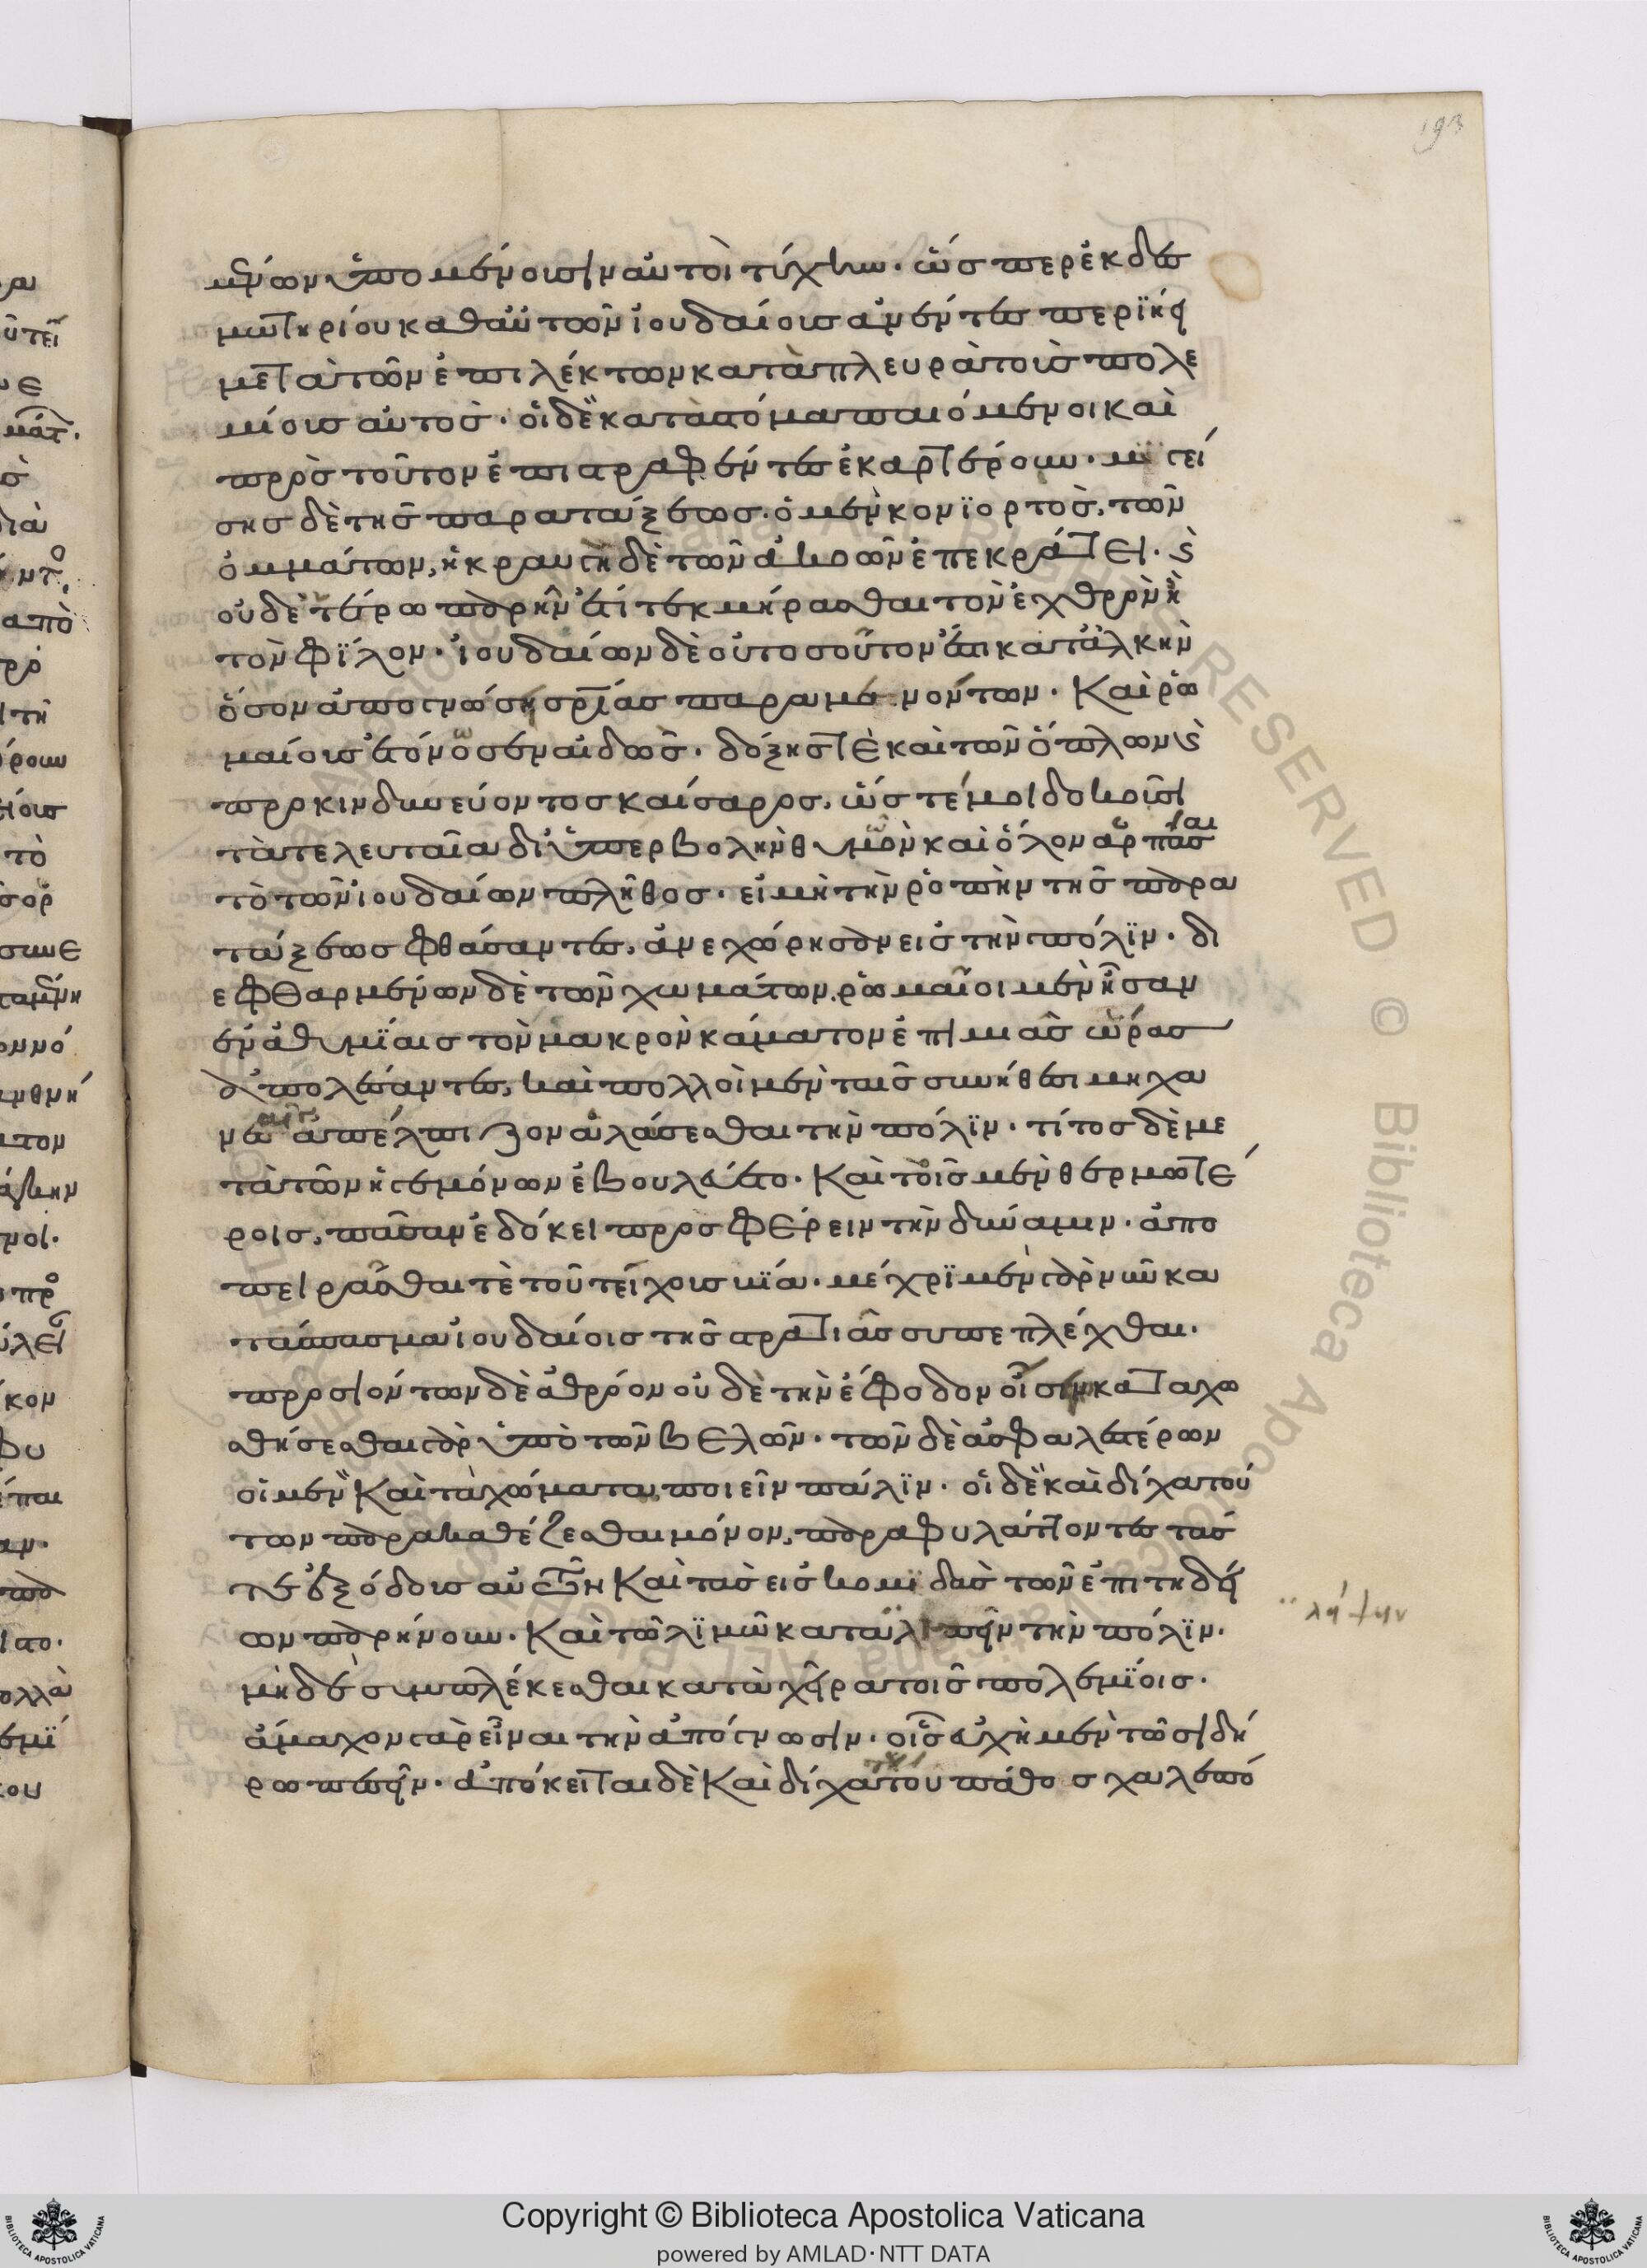 μένων ὑπομένουσιν αὐτοὶ τύχην. ὥσπερ ἐκ δεσ
μωτηρίου καθ' αὑτῶν ἰουδαίους ἀνέντες περιήει
μετὰ τῶν ἐπιλέκτων κατὰ πλευρὰ τοῖς πολε
μίοις αὐτός. οἱ δὲ κατὰ στόμα παιόμενοι καὶ
πρὸς τοῦτον ἐπιστραφέντες ἐκαρτέρουν. μιγεί
σης δὲ τῆς παρατάξεως. ὁ μὲν κονιορτὸς, τῶν
ὀμμάτων, ἡ κραυγὴ δὲ τῶν ἀκοῶν ἐπεκράτει. καὶ
οὐδετέρω παρῆν ἔτι τεκμήρασθαι τὸν ἐχθρὸν ἢ
τὸν φίλον. ἰουδαίων δὲ οὐ τοσοῦτον ἔτι κατ' ἀλκὴν
ὅσον ἀπογνώσει σρίας παραμενόντων. Καὶ ῥω
μαίους ἐτόνωσεν αἰδὼς. δόξης τὲ καὶ τῶν ὅπλων καὶ
προκινδυνεύοντος καίσαρος, ὥστέ μοι δοκοῦσι
τὰ τελευταῖα δι' ὑπερβολὴν θυμῶν καὶ ὅλον ἁρπάσαι
τὸ τῶν ἰουδαίων πλῆθος. εἰ μὴ τὴν ῥοπὴν τῆς παρα
τάξεως φθάσαντες, ἀνεχώρησαν εἰς τὴν πόλιν. δι
εφθαρμένων δὲ τῶν χωμάτων, ῥωμαῖοι μὲν ἦσαν
ἐν ἀθυμίαις τὸν μακρὸν κάματον ἐπὶ μιᾶς ὥρας
ἀπολέσαντες, καὶ πολλοὶ μὲν ταῖς συνήθεσι μηχα
ναῖς ἀπέλπιζον ἁλώσεσθαι τὴν πόλιν. τίτος δὲ με
τὰ τῶν ἡγεμόνων ἐβουλεύετο. Καὶ τοῖς μὲν θερμοτέ
ροις, πᾶσαν ἐδόκει προσφέρειν τὴν δύναμιν. ἀπο
πειρᾶσθαι τὲ τοῦ τείχους βία. μέχρι μὲν γὰρ νῦν κα
τὰ σπάσμα ἰουδαίοις τῆς στρατιᾶς συμπεπλέχθαι.
προσιόντων δὲ ἀθρόον οὐδὲ τὴν ἔφοδον οἴσειν καταχω
σθήσεσθαι γὰρ ὑπὸ τῶν βελῶν. τῶν δὲ ἀσφαλεστέρων
οἱ μὲν Καὶ τὰ χώματα ποιεῖν πάλιν. οἱ δὲ καὶ δίχα τού
των παρακαθέζεσθαι μόνον, παραφυλάττοντες τάς
τε ἐξόδους αὐτῶν Καὶ τὰς εἰσκομιδὰς τῶν ἐπιτηδεί
ων παρήνουν. Καὶ τῶ λιμῶ καταλιπεῖν τὴν πόλιν.
μηδὲ συμπλέκεσθαι κατὰ χεῖρα τοῖς πολεμίοις.
ἄμαχον γὰρ εἶναι τὴν ἀπόγνωσιν. οἷς εὐχὴ μὲν τὸ σιδή
ρω πεσεῖν. ἀπόκειται δὲ Καὶ δίχα τούτου πάθος χαλεπώ